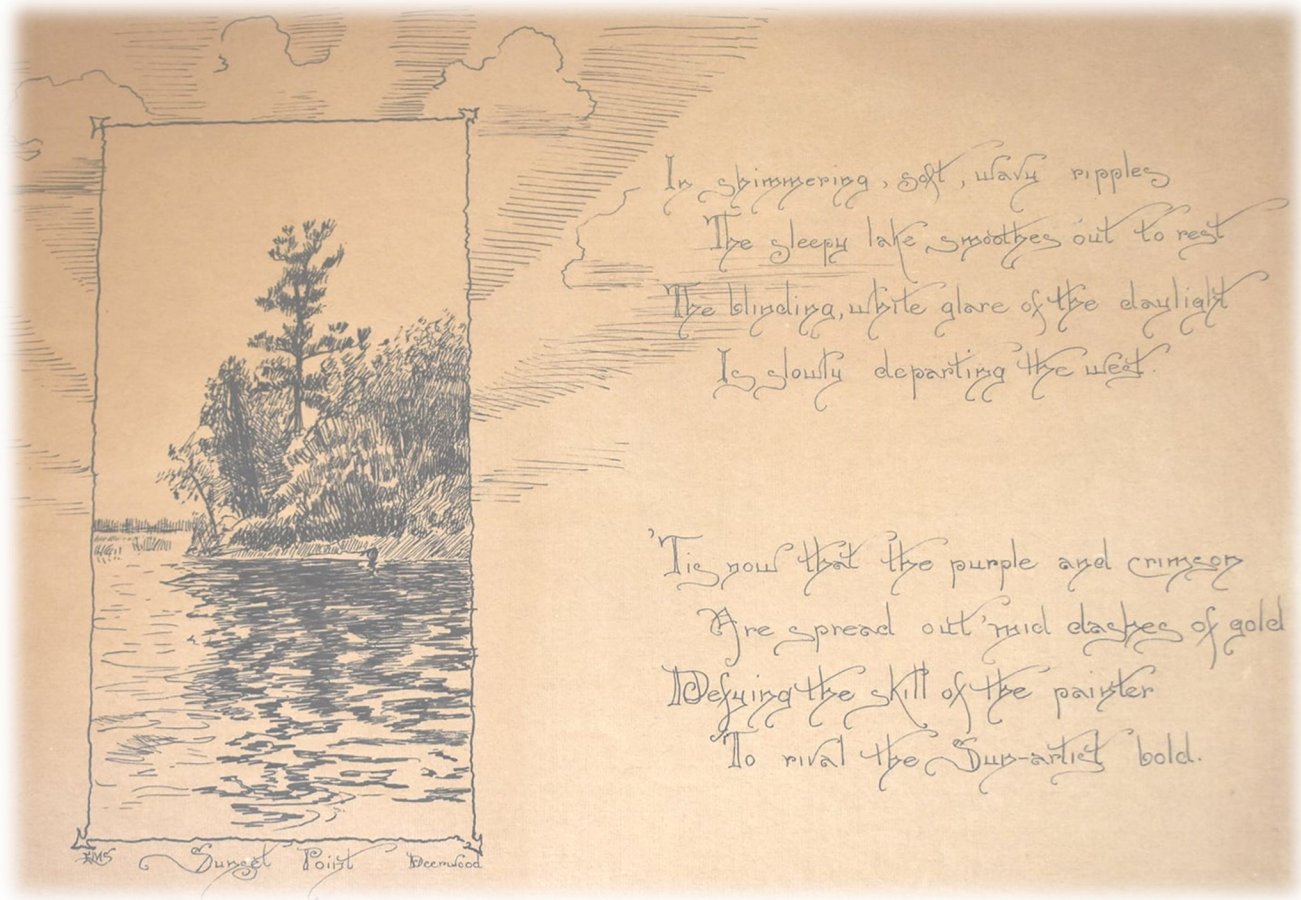 In shimmering, soft, wavy ripples
The sleepy lake smoothes out to rest
The blinding, white glare of the daylight
Is slowly departing the west.
'Tis now that the purple and crimson
Are spread out 'mid dashes of gold
Defying the skill of the painter
To rival the Sun-artist bold.
Sunset Point Deerwood